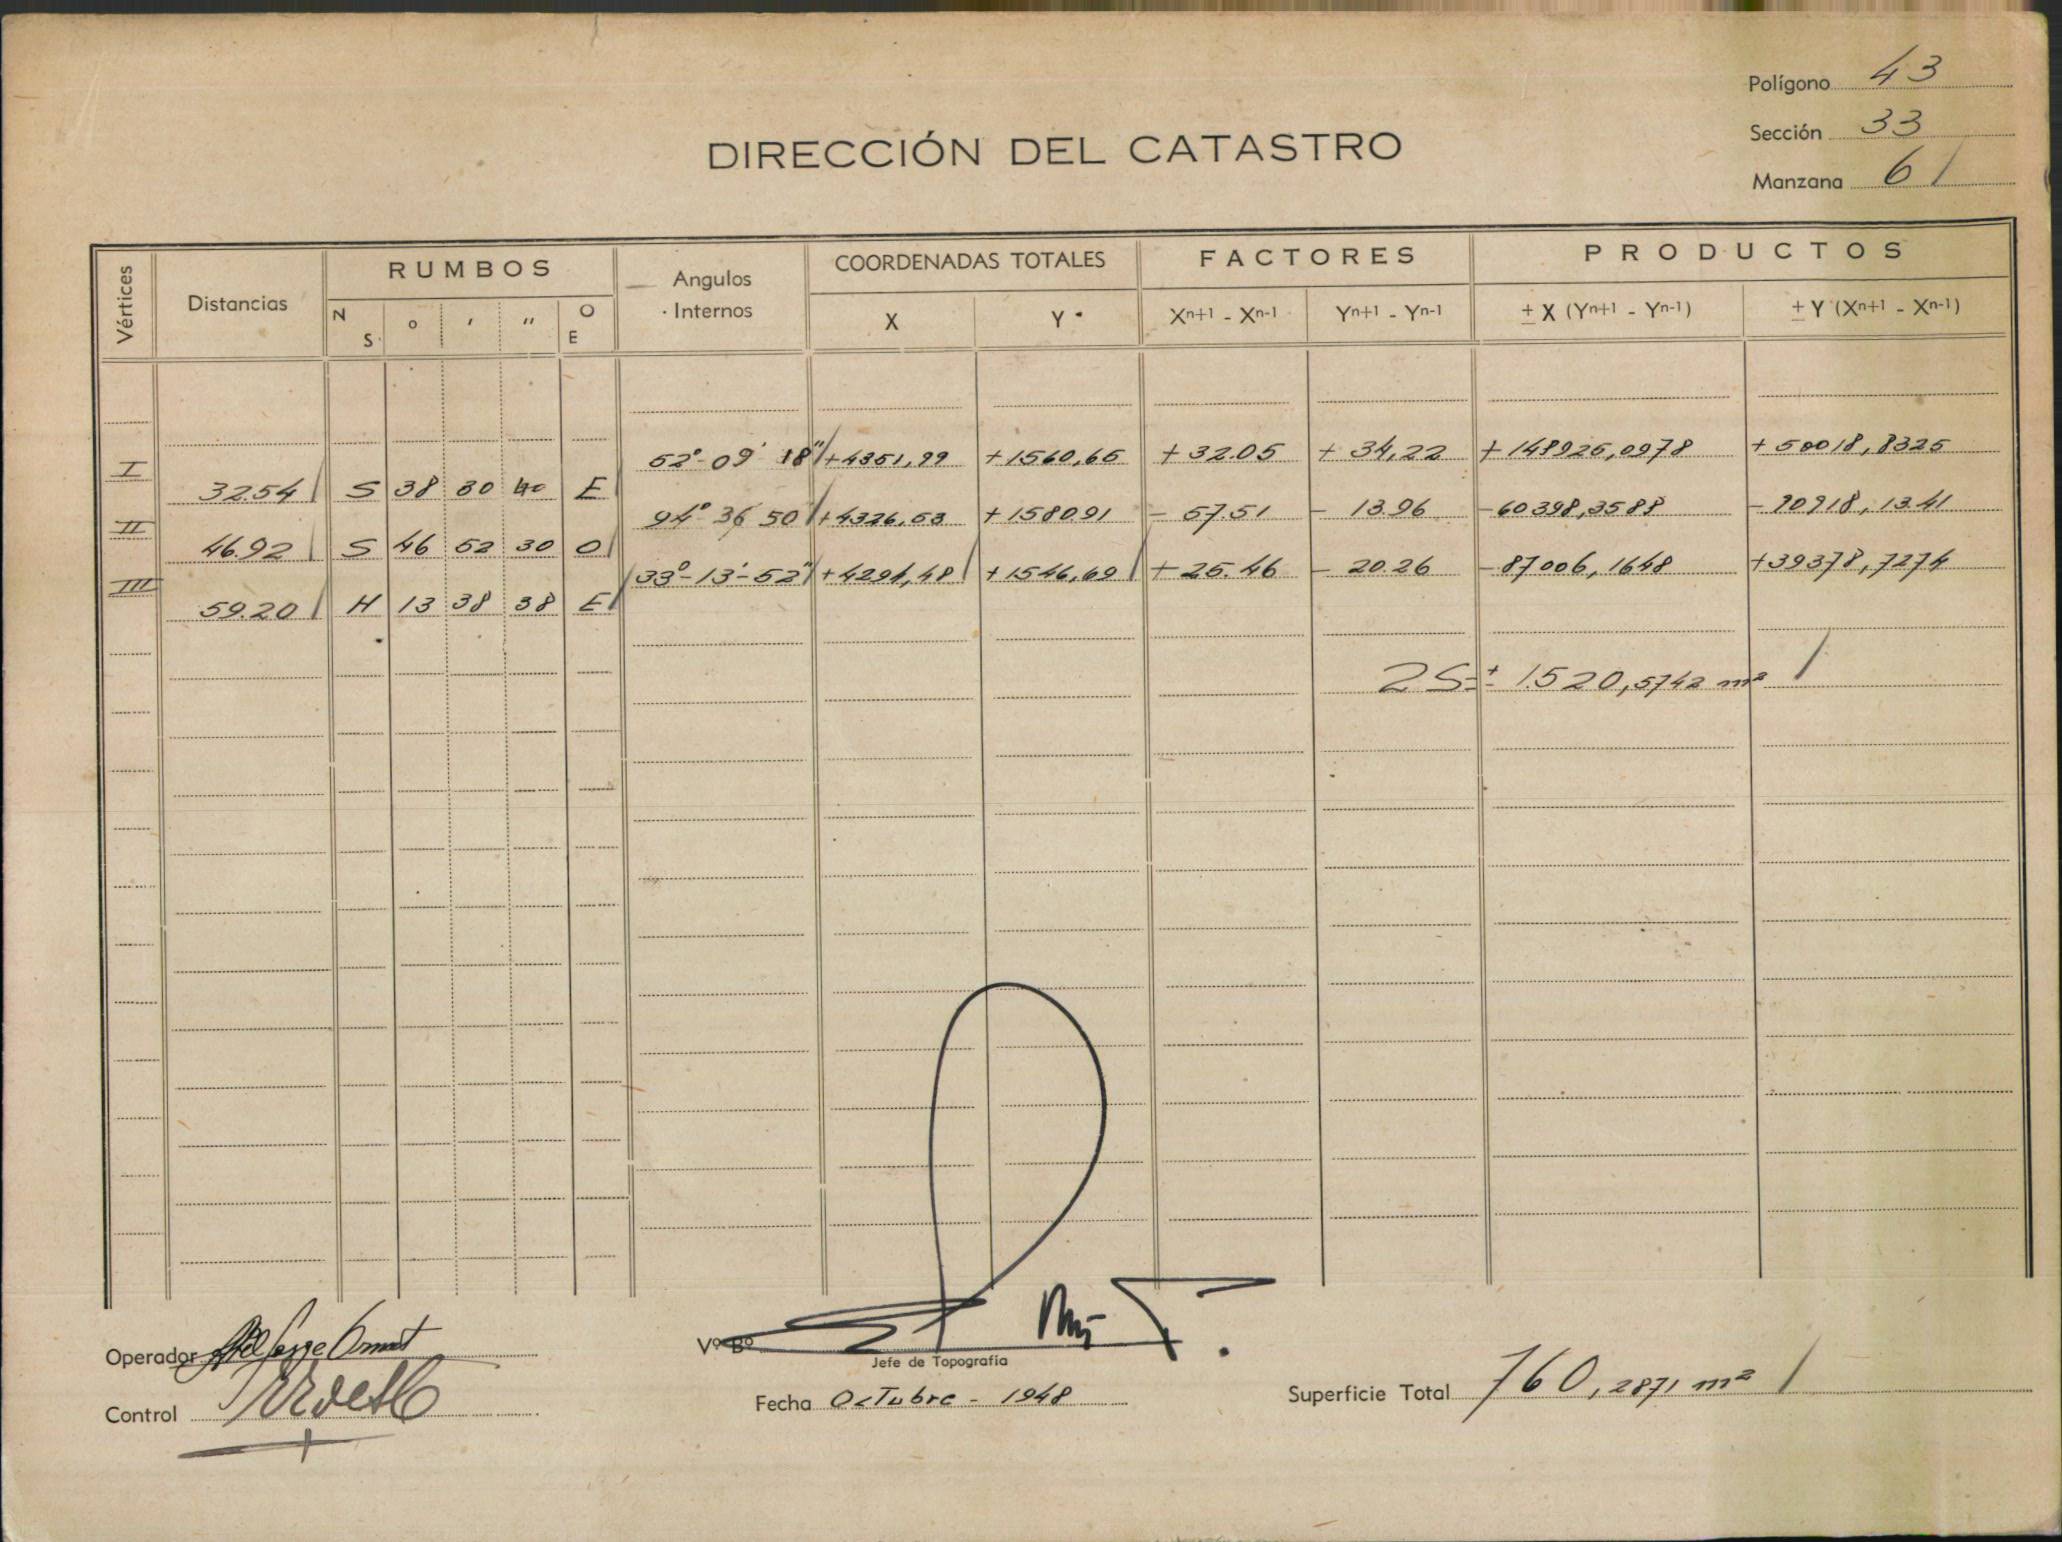 Polígono 43
Sección 33
Manzana 6 /
DIRECCIÓN DEL CATASTRO
Vértices Distancias RUMBOS Angulos Internos COORDENADAS TOTALES FACTORES PRODUCTOS
N S ° ' " O E X Y Xn+1 - Xn-1 Yn+1 - Yn-1 ± X (Yn+1 - Yn-1) ± Y (Xn+1 - Xn-1)
I 52°-09' 18" +4351,99 +1560,65 +32.05 +34,22 +148925,0978 +50018,8325
32.54 S 38 30 40 E
II 94° 36 50 +4326,53 +1580.91 -57.51 - 13.96 -60398,3588 -90918,13.41
46.92 S 46 52 30 O
III 33°-13'-52" +4294,48 +1546,69 +25.46 - 20.26 -87006,1648 +39378,7274
59.20 N 13 38 38 E
2S=± 1.520,5742 m²
Operador
Control
Vº Bº
Jefe de Topografía
Fecha Octubre - 1948
Superficie Total 760,2871 m²